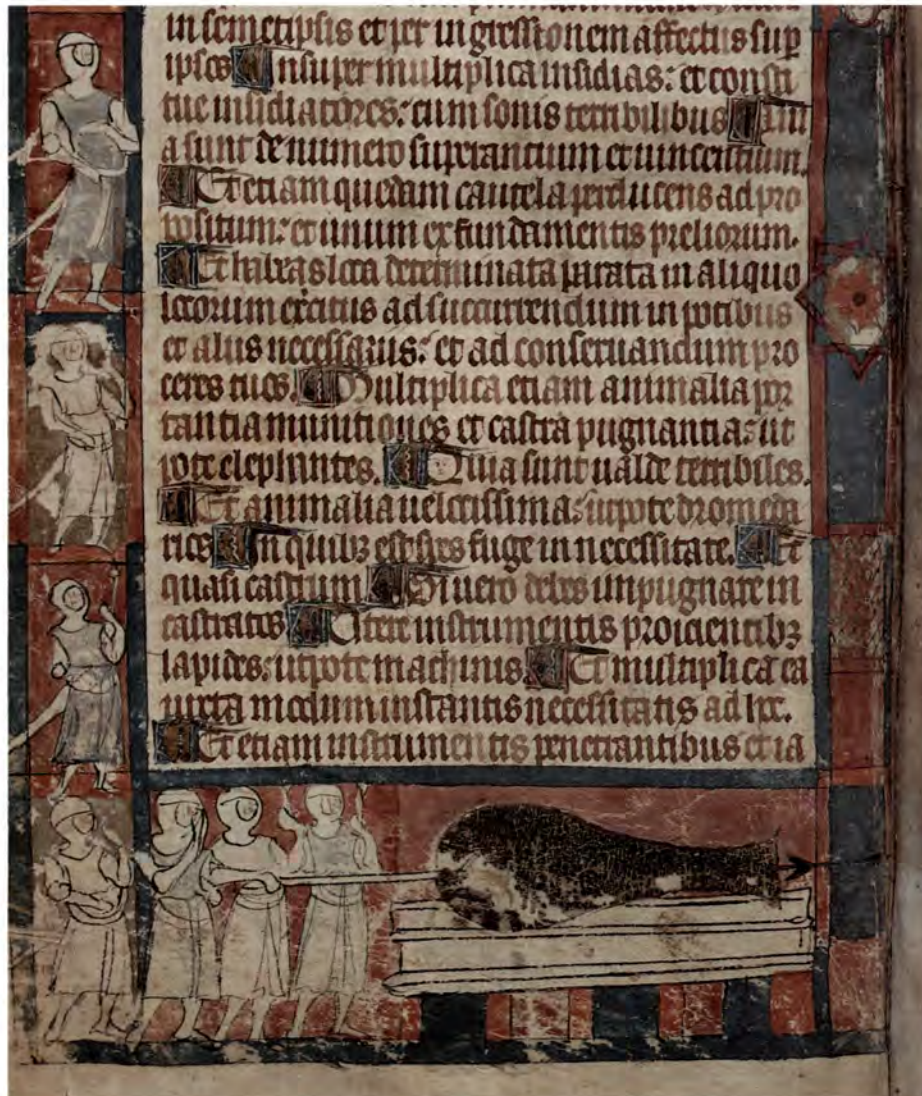 in semetipsis et per ingressionem affectus sup
ipsos Insuper multiplica insidias: et consti
tue insidiatores: cum sonis terribilibus Nam
a sunt de numero superantium et uincentium.
Et etiam quedam cautela perducens ad pro
positum: et unum ex fundamentis preliorum.
Et habeas loca determinata parata in aliquo
locorum exercitus ad succurrendum in potibus
et aliis necessariis: et ad conseruandum pro
ceres tuos. Multiplica etiam animalia por
tantia munitiones et castra pugnantia: ut
pote elephantes. Quia sunt ualde terribiles.
Et animalia uelocissima: utpote dromeda
rios In quibus est spes fuge in necessitate. Et
quasi castrum Si uero debes impugnare in
castratos Utere instrumentis proicientibus
lapides: utpote machinis Et multiplica ea
iuxta modum instantis necessitatis ad hoc.
Et etiam instrumentis penetrantibus et ia